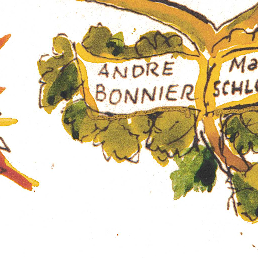 ANDRÉ
BONNIER
Ma
SCHL